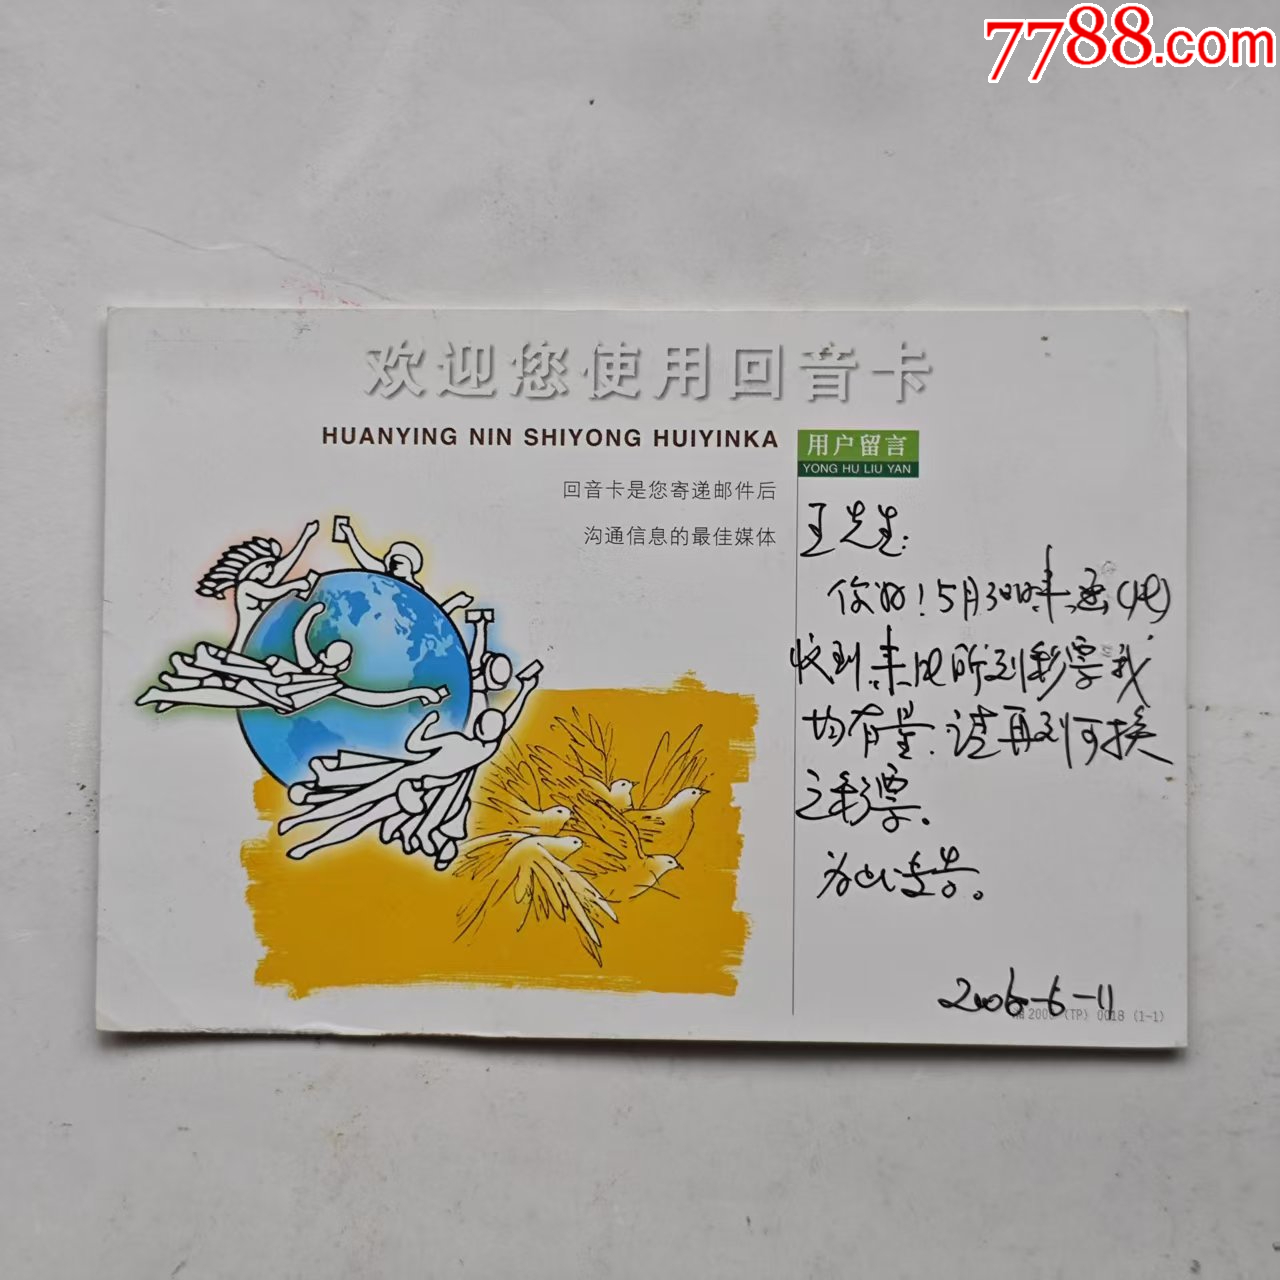 7788.com
欢迎您使用回音卡
HUANYING NIN SHIYONG HUIYINKA
回音卡是您寄递邮件后
沟通信息的最佳媒体
用户留言
YONG HU LIU YAN
王先生：
你好！5月30日来函(况)
收到.来况所列彩票我
均有量.请再列可换
之彩票.
为此送告。
2006-6-11
(TP) 0018 (1-1)